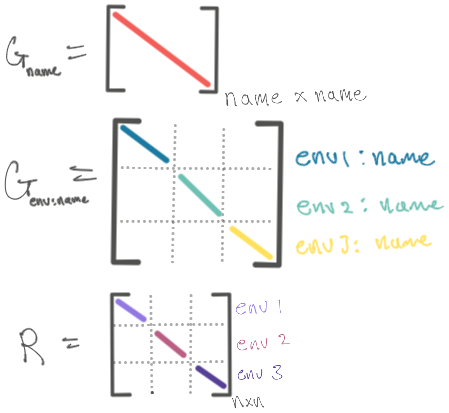 G name =
name x name
G env:name =
env1: name
env2: name
env3: name
R =
env 1
env 2
env 3
nxn